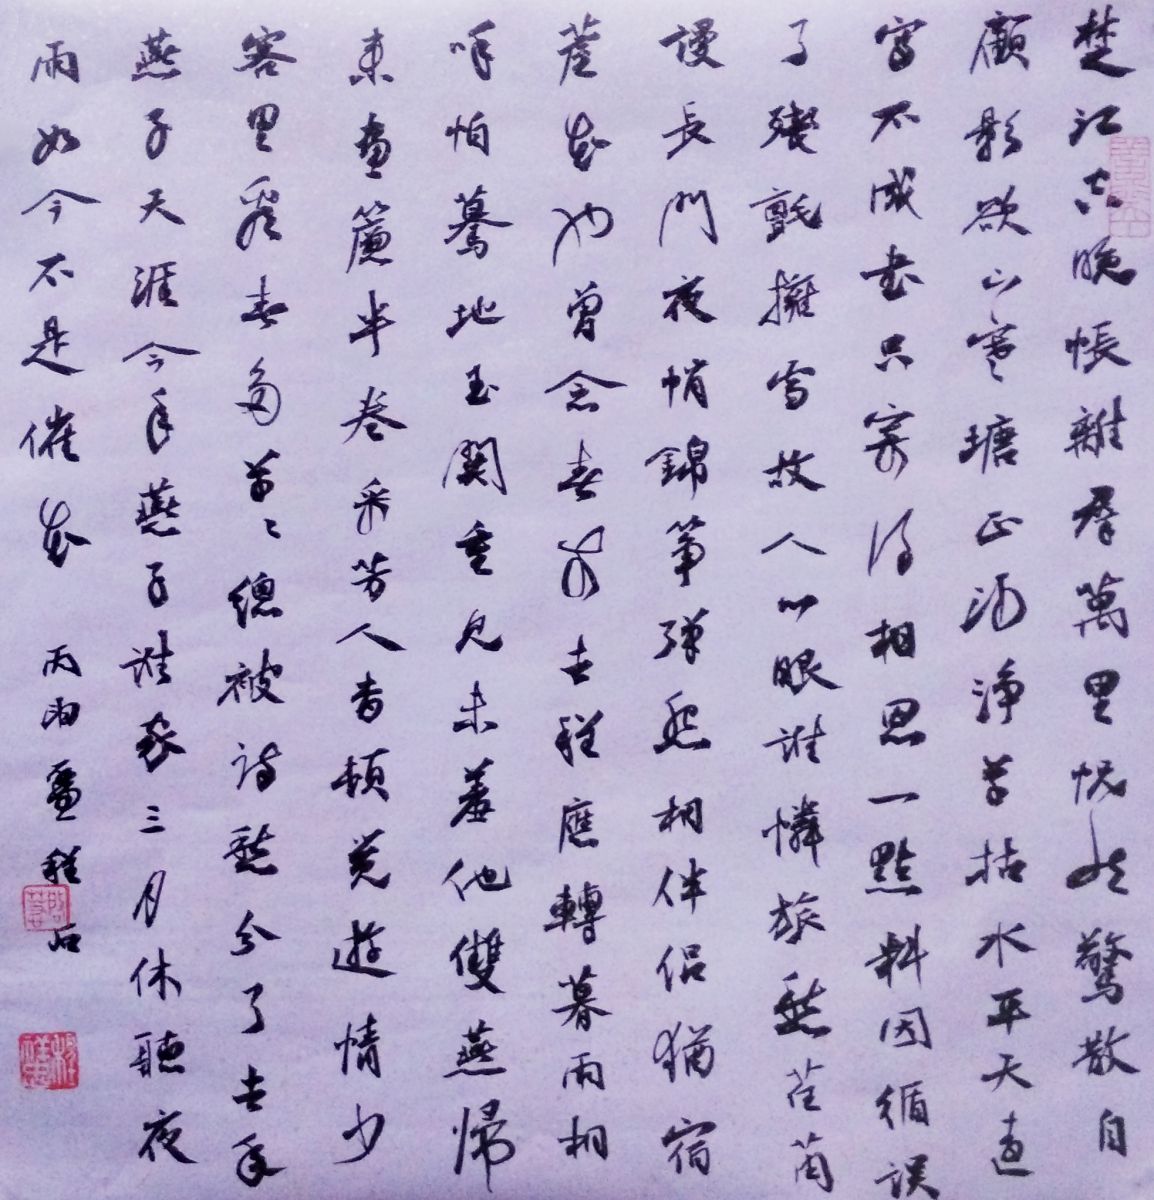 楚江空晚悵離羣萬里怳然驚散自
顧影欲下寒塘正沙淨草枯水平天遠
寫不成書只寄得相思一點料因循誤
了殘氈擁雪故人心眼誰憐旅愁荏苒
謾長門夜悄錦箏彈怨相伴侶猶宿
蘆花也曾念春前去程應轉暮雨相
呼怕驀地玉關重見未羞他雙燕歸
來畫簾半卷采芳人杳頓覺遊情少
客里看春多草草總被詩愁分了去年
燕子天涯今年燕子誰家三月休聽夜
雨如今不是催花 丙申夏程石